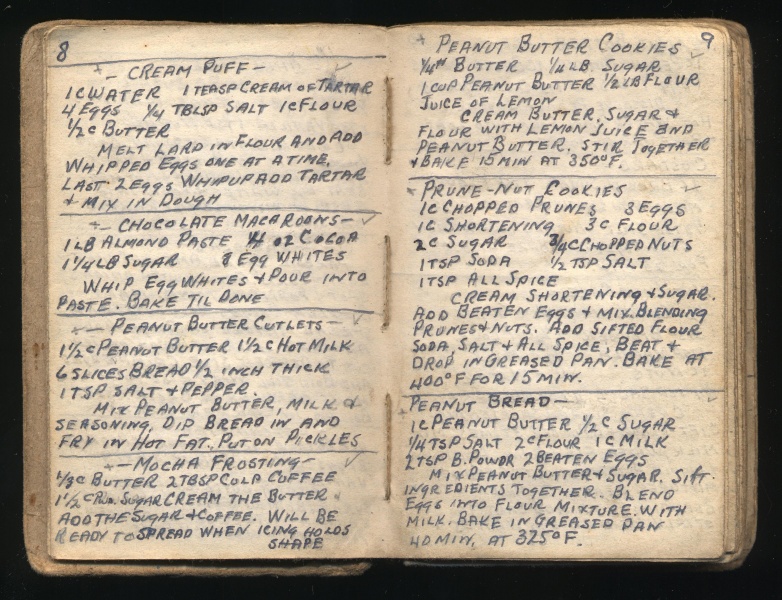 8
- CREAM PUFF -
1C WATER 1 TEASP CREAM OF TARTAR
4 EGGS 1/4 TBLSP SALT 1C FLOUR
1/2 C BUTTER
MELT LARD IN FLOUR AND ADD
WHIPPED EGGS ONE AT A TIME.
LAST 2 EGGS WHIP UP ADD TARTAR
& MIX IN DOUGH
- CHOCOLATE MACAROONS -
1 LB ALMOND PASTE OZ COCOA
1 1/4 LB SUGAR 8 EGG WHITES
WHIP EGG WHITES & POUR INTO
PASTE. BAKE TIL DONE
- PEANUT BUTTER CUTLETS -
1 1/2 C PEANUT BUTTER 1 1/2 C HOT MILK
6 SLICES BREAD 1/2 INCH THICK
1 TSP SALT & PEPPER.
MIX PEANUT BUTTER, MILK &
SEASONING, DIP BREAD IN AND
FRY IN HOT FAT. PUT ON PICKLES
- MOCHA FROSTING -
1/3 C BUTTER 2 TBSP COLD COFFEE
1 1/2 C SUGAR CREAM THE BUTTER
ADD THE SUGAR & COFFEE. WILL BE
READY TO SPREAD WHEN ICING HOLDS
SHAPE
9
PEANUT BUTTER COOKIES
1/4# BUTTER 1/4 LB SUGAR
1 CUP PEANUT BUTTER 1/2 LB FLOUR
JUICE OF LEMON
CREAM BUTTER, SUGAR &
FLOUR WITH LEMON JUICE AND
PEANUT BUTTER. STIR TOGETHER
& BAKE 15 MIN AT 350°F.
PRUNE-NUT COOKIES
1C CHOPPED PRUNES 3 EGGS
1C SHORTENING 3C FLOUR
2C SUGAR 3/4 C CHOPPED NUTS
1 TSP SODA 1/2 TSP SALT
1 TSP ALL SPICE
CREAM SHORTENING & SUGAR.
ADD BEATEN EGGS & MIX. BLENDING
PRUNES & NUTS. ADD SIFTED FLOUR
SODA SALT & ALL SPICE, BEAT &
DROP IN GREASED PAN. BAKE AT
400°F FOR 15 MIN.
PEANUT BREAD -
1C PEANUT BUTTER 1/2 C SUGAR
1/4 TSP SALT 2C FLOUR 1C MILK
2 TSP B. POWDR 2 BEATEN EGGS
MIX PEANUT BUTTER & SUGAR. SIFT
INGREDIENTS TOGETHER. BLEND
EGGS INTO FLOUR MIXTURE. WITH
MILK. BAKE IN GREASED PAN
40 MIN. AT 325°F.